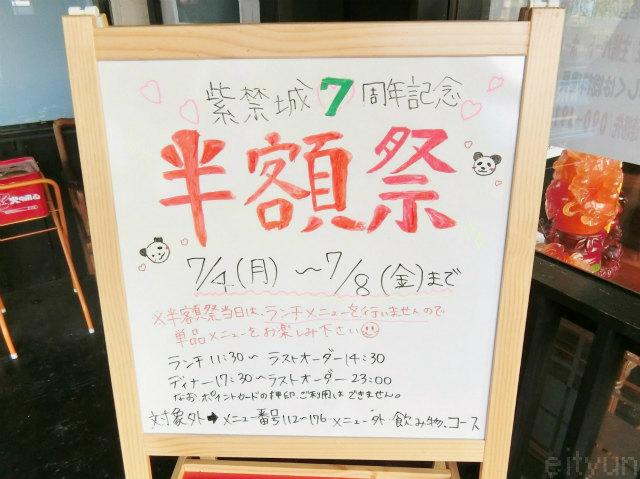 紫禁城7周年記念
半額祭
7/4(月)〜7/8(金)まで
※半額祭当日は、ランチメニューを行いませんので
単品メニューをお楽しみ下さい
ランチ11:30〜 ラストオーダー14:30
ディナー17:30〜ラストオーダー23:00
なお、ポイントカードの押印、ご利用はできません。
対象外→メニュー番号112〜176 メニュー外・飲み物、コース
eityun